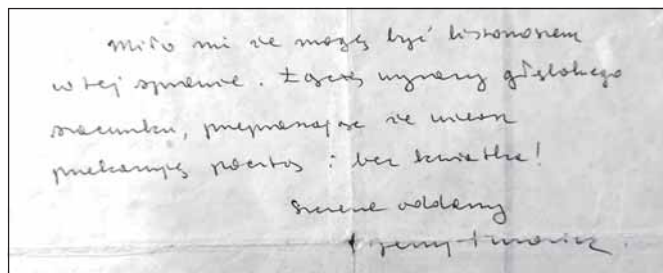 Miło mi że mogę być listonoszem
w tej sprawie. Łączę wyrazy głębokiego
szacunku, przepraszając że wiersz
przekazuję pocztą i bez kwiatka!
Szczerze oddany
Jerzy Turowicz